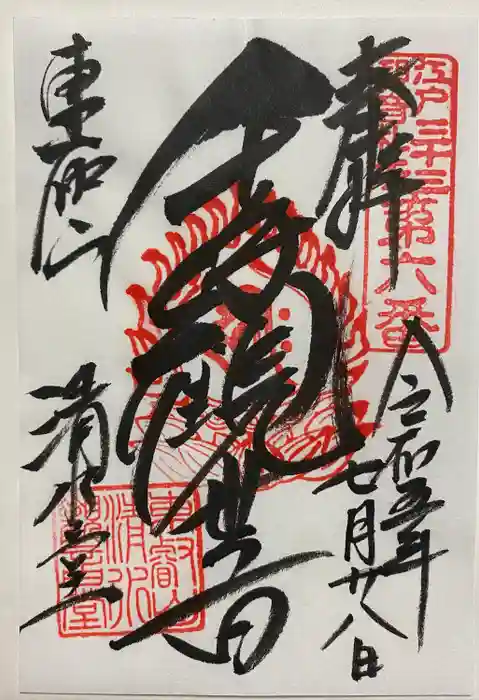 江戸三十三第六番
奉拝
令和五年
七月廿八日
千手観世音
東叡山
清水堂
東叡山
清水
観音堂